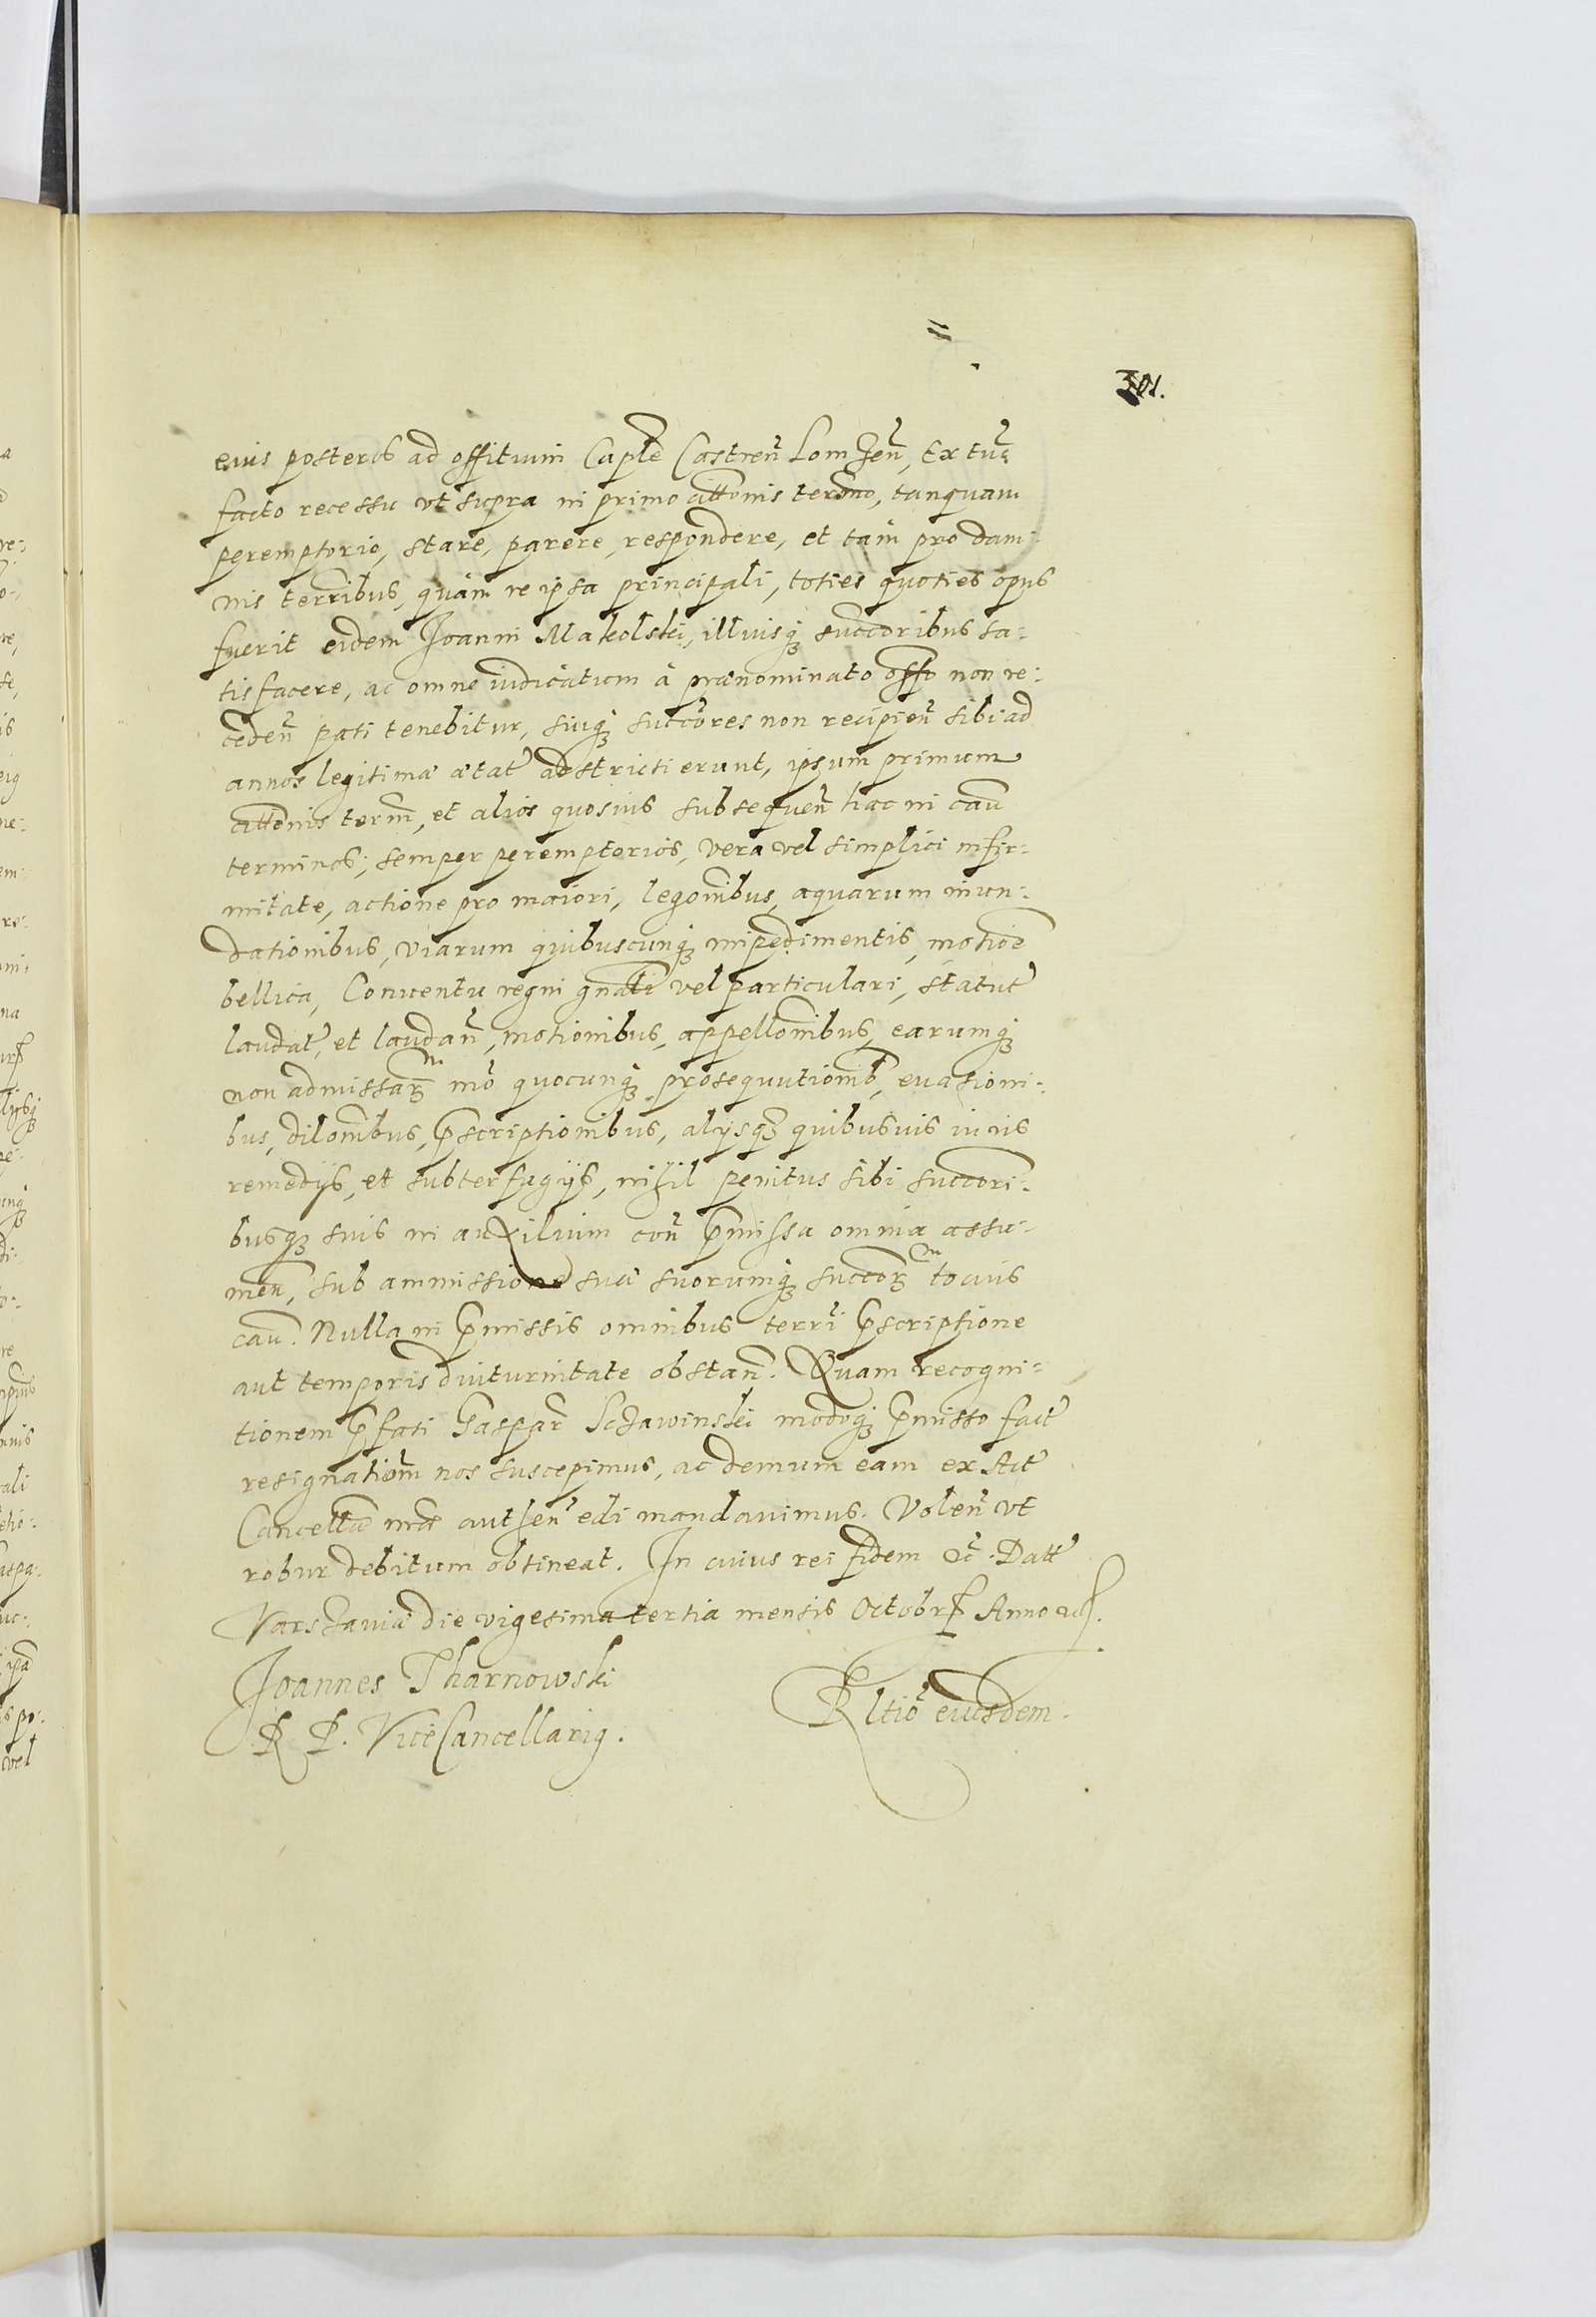 301.
eius posteros ad offitium Caplẽ Castreñ Lomzeñ, Ex tũc
facto recessu vt supra in primo cittonis termno, tanquam
peremptorio, stare, parere, respondere, et tam pro dam-
nis terribus, quàm re ipsa principali, toties quoties opus
fuerit eidem Joanni Makolski, illiusq3 succoribus sa-
tisfacere, ac omne iudicatum à prænominato offo non re-
cedeñ pati tenebitur, suiq3 succores non recipieñ sibi ad
annos legitimæ ætat adstricti erunt, ipsum primum
cittonis term, et alios quosuis subsequeñ hac in cau
terminos, semper peremptorios, vera vel simplici infir-
mitate, actione pro maiori, legonibus, aquarum inun-
dationibus, viarum quibuscunq3 impedimentis, motioe
bellica, Conuentu regni gnali vel particulari, statut
laudat, et laudañ, motionibus, appellonibus, earumq3
non admissar mo quocunq3 prosequutionib, euasioni-
bus, dilonibus, pscriptionibus, alysq3 quibusuis iuris
remedys, et subterfugys, nihil penitus sibi succori-
busq3 suis in auxilium con pmissa omnia assu-
meñ, sub ammissione sua suorumq3 succor totius
cau. Nulla in pmissis omnibus terri pscriptione
aut temporis diuturnitate obstañ. Quam recogni-
tionem pfati Gaspar Sczawinski modoq3 pmisso fact
resignationm nos suscepimus, ac demum eam ex Act
Cancellæ nræ authen edi mandauimus. Voleñ vt
robur debitum obtineat. In cuius rei fidem &c. Datt
Varszauiæ die vigesima tertia mensis Octobr Anno ud.
Joannes Tharnowski
R P. ViceCancellarig.
Rltio eiusdem.